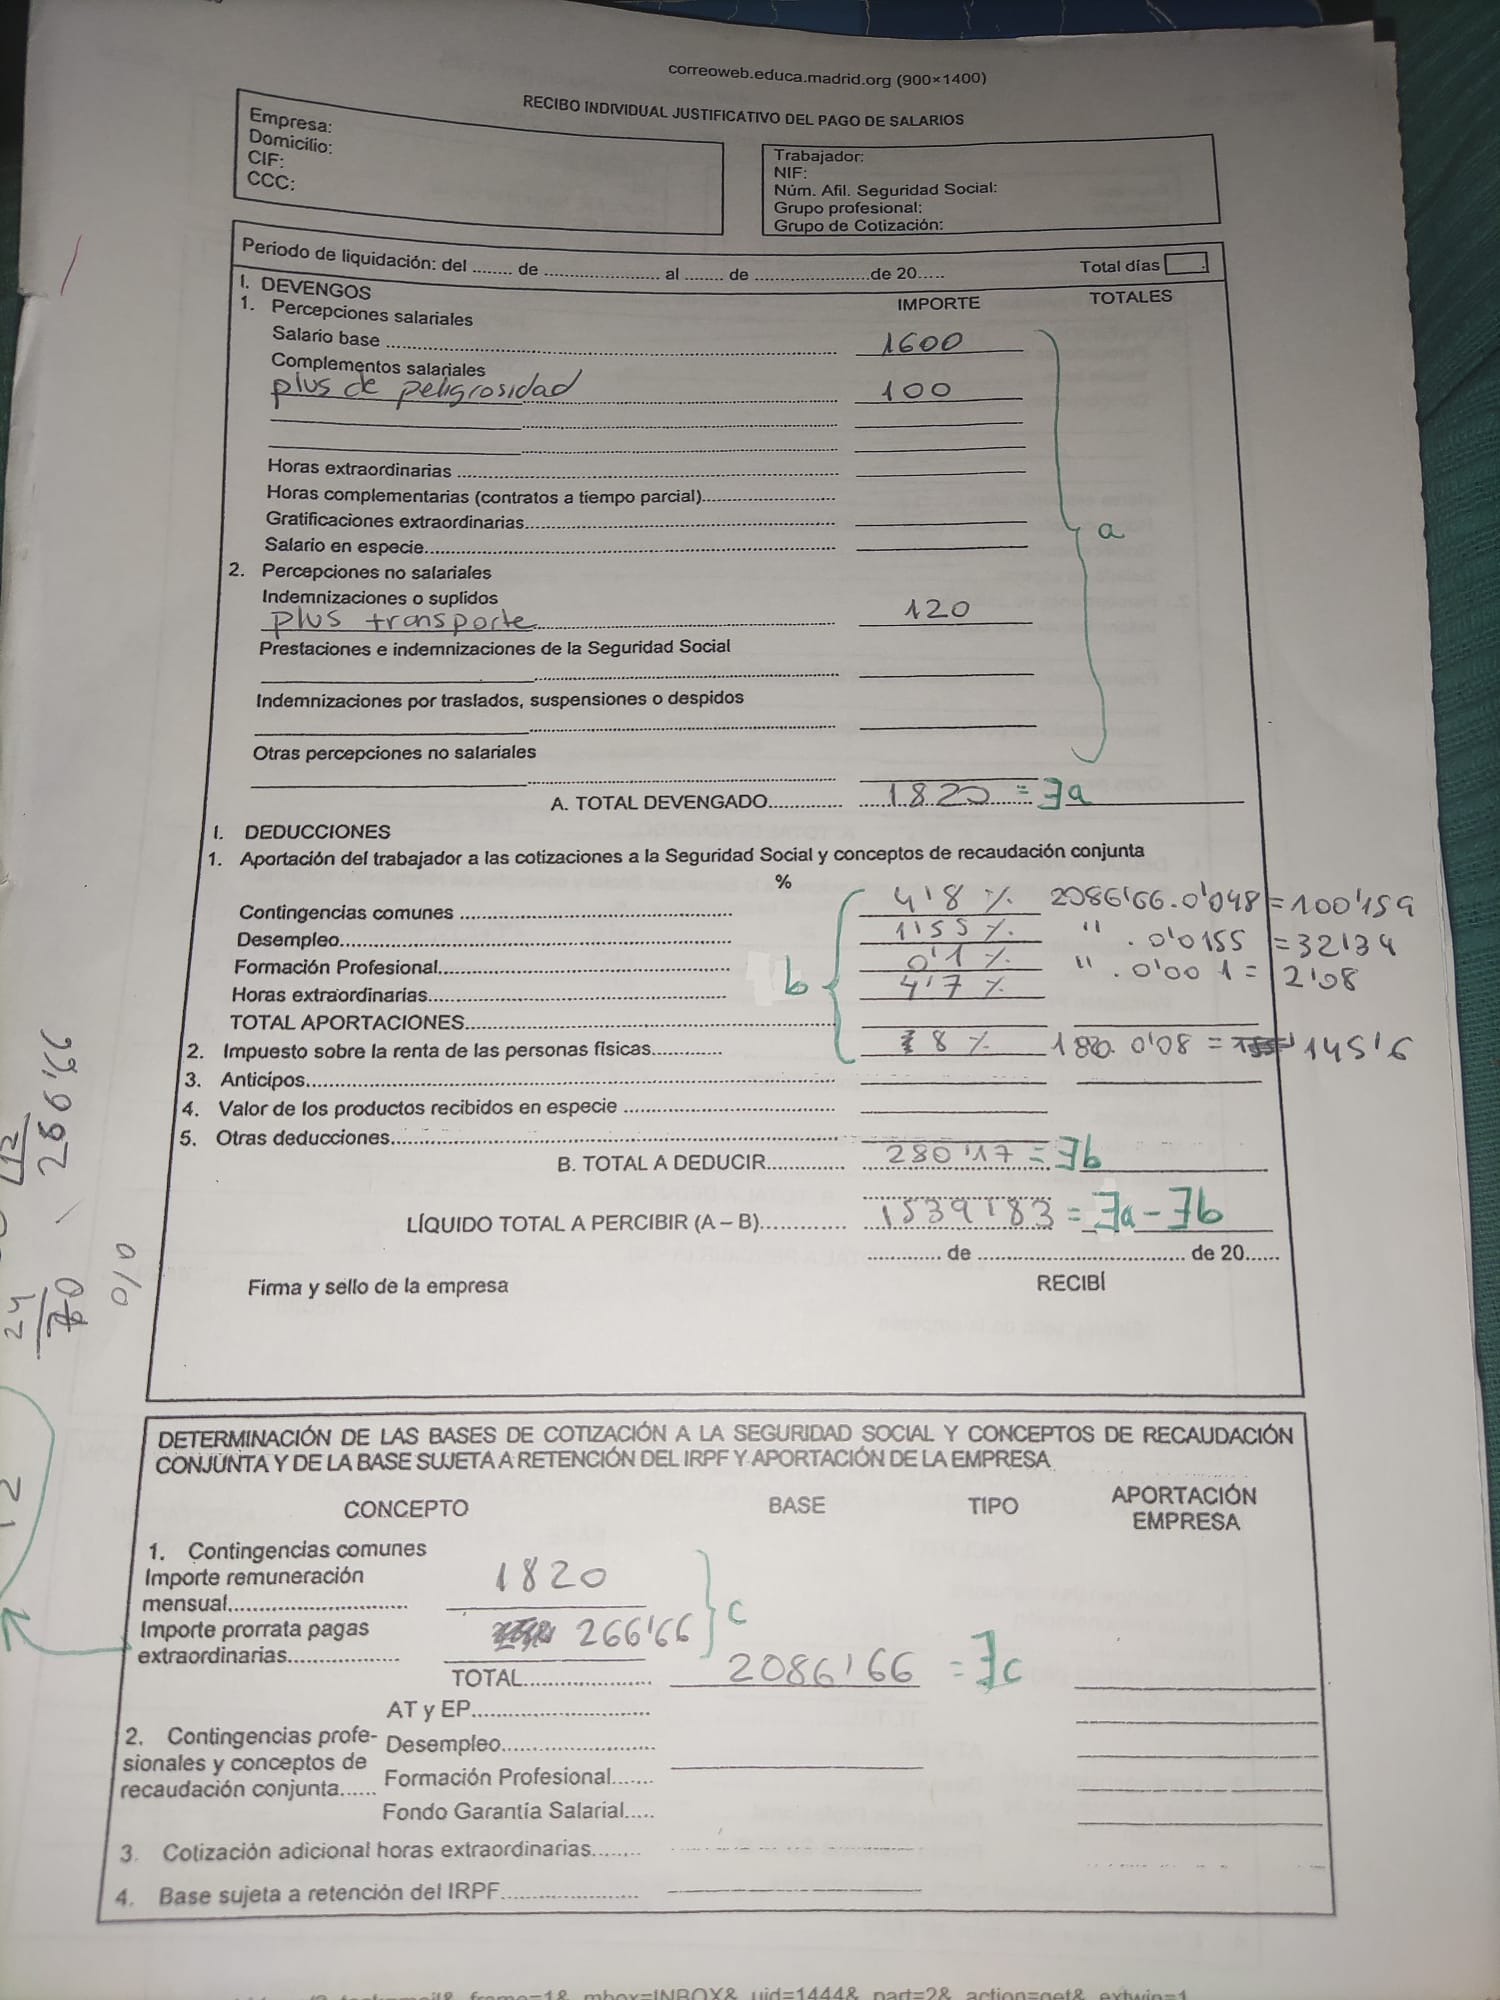 correoweb.educa.madrid.org (900×1400)
RECIBO INDIVIDUAL JUSTIFICATIVO DEL PAGO DE SALARIOS
Empresa:
Domicilio:
CIF:
CCC:
Trabajador:
NIF:
Núm. Afil. Seguridad Social:
Grupo profesional:
Grupo de Cotización:
Periodo de liquidación: del ........ de ..................... al ....... de ..................... de 20..... Total días
I. DEVENGOS IMPORTE TOTALES
1. Percepciones salariales
Salario base 1600
Complementos salariales
plus de peligrosidad 100
Horas extraordinarias
Horas complementarias (contratos a tiempo parcial)
Gratificaciones extraordinarias a
Salario en especie
2. Percepciones no salariales
Indemnizaciones o suplidos
plus transporte 120
Prestaciones e indemnizaciones de la Seguridad Social
Indemnizaciones por traslados, suspensiones o despidos
Otras percepciones no salariales
A. TOTAL DEVENGADO............. 1820 = ∃a
I. DEDUCCIONES
1. Aportación del trabajador a las cotizaciones a la Seguridad Social y conceptos de recaudación conjunta
%
Contingencias comunes 4'8 % 2086'66 . 0'048 = 100'159
Desempleo 1'55 % " . 0'0155 = 32'34
Formación Profesional 0'1 % " . 0'001 = 2'08
b
Horas extraordinarias 4'7 %
TOTAL APORTACIONES
2. Impuesto sobre la renta de las personas físicas 8 % 1820. 0'08 = 145'6
3. Anticipos
4. Valor de los productos recibidos en especie
5. Otras deducciones
B. TOTAL A DEDUCIR 280'17 = ∃b
LÍQUIDO TOTAL A PERCIBIR (A – B) 1539'83 = ∃a - ∃b
............ de ................................... de 20......
Firma y sello de la empresa RECIBÍ
DETERMINACIÓN DE LAS BASES DE COTIZACIÓN A LA SEGURIDAD SOCIAL Y CONCEPTOS DE RECAUDACIÓN
CONJUNTA Y DE LA BASE SUJETA A RETENCIÓN DEL IRPF Y APORTACIÓN DE LA EMPRESA
CONCEPTO BASE TIPO APORTACIÓN
EMPRESA
1. Contingencias comunes
Importe remuneración 1820
mensual
Importe prorrata pagas 266'66 c
extraordinarias
TOTAL 2086'66 = ∃c
AT y EP
2. Contingencias profe-
sionales y conceptos de
recaudación conjunta......
Desempleo
Formación Profesional
Fondo Garantía Salarial
3. Cotización adicional horas extraordinarias
4. Base sujeta a retención del IRPF
12
266'66
24
80
0/0
12
frame=1& mbox=INBOX& uid=1444& part=2& action=get& extwin=1